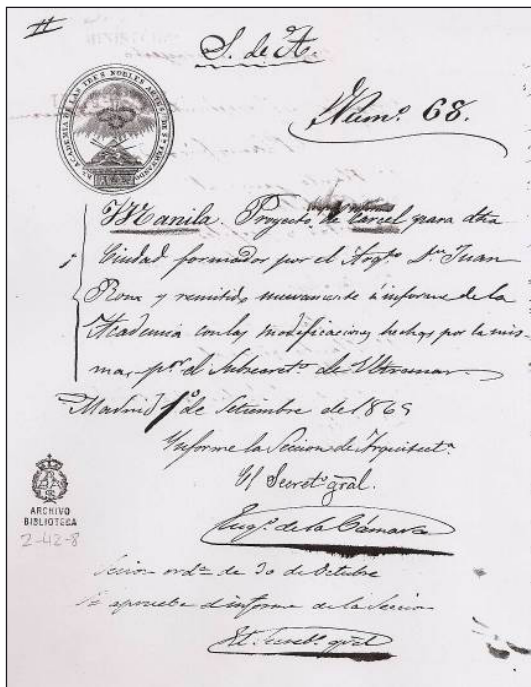 S. de A.
Núm.º 68.
ACADEMIA DE LAS TRES NOBLES ARTES DE Sn FERNANDO
Manila. Proyecto de Carcel para dha
Ciudad formados por el Arqto Dn Juan
Rom y remitido nuevamente á informe de la
Academia con las modificaciones hechas por la mis-
ma, pr el Subsecreto de Ultramar.
Madrid 1º de Setiembre de 1869
Informe la Seccion de Arquitecta.
El Secreto gral.
Eugo de la Cámara
ARCHIVO
BIBLIOTECA
2-42-8
Sesion orda de 30 de Octubre
Se aprueba el informe de la Seccion
El Secreto gral